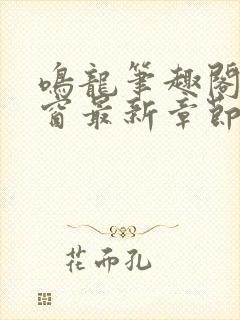 鳴龍筆趣閣
窗最新章節
花而孔